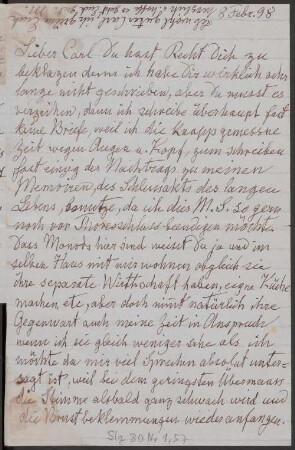 8 Febr. 98
Lieber Carl Du hast Recht Dich zu
beklagen denn ich habe Dir wirklich sehr
lange nicht geschrieben, aber Du musst es
verzeihen, denn ich schreibe überhaupt fast
keine Briefe, weil ich die knapp gemessne
Zeit wegen Augen u. Kopf, zum schreiben
fast einzig des Nachtrags zu meinen
Memoiren, des Schlussakts des langen
Lebens, benutze, da ich dies M.S. so gern
noch vor Thoresschluss beendigen möchte.
Dass Monods hier sind weisst Du ja und im
selben Haus mit mir wohnen obgleich sie
ihre separate Wirthschaft haben, eigne Küche
machen, etc, aber doch nimt natürlich ihre
Gegenwart auch meine Zeit in Anspruch
wenn ich sie gleich weniger sehe als ich
möchte da mir viel Sprechen absolut unter-
sagt ist, weil bei dem geringsten Übermaass
die Stimme alsbald ganz schwach wird und
die Brustbeklemmungen wieder anfangen.